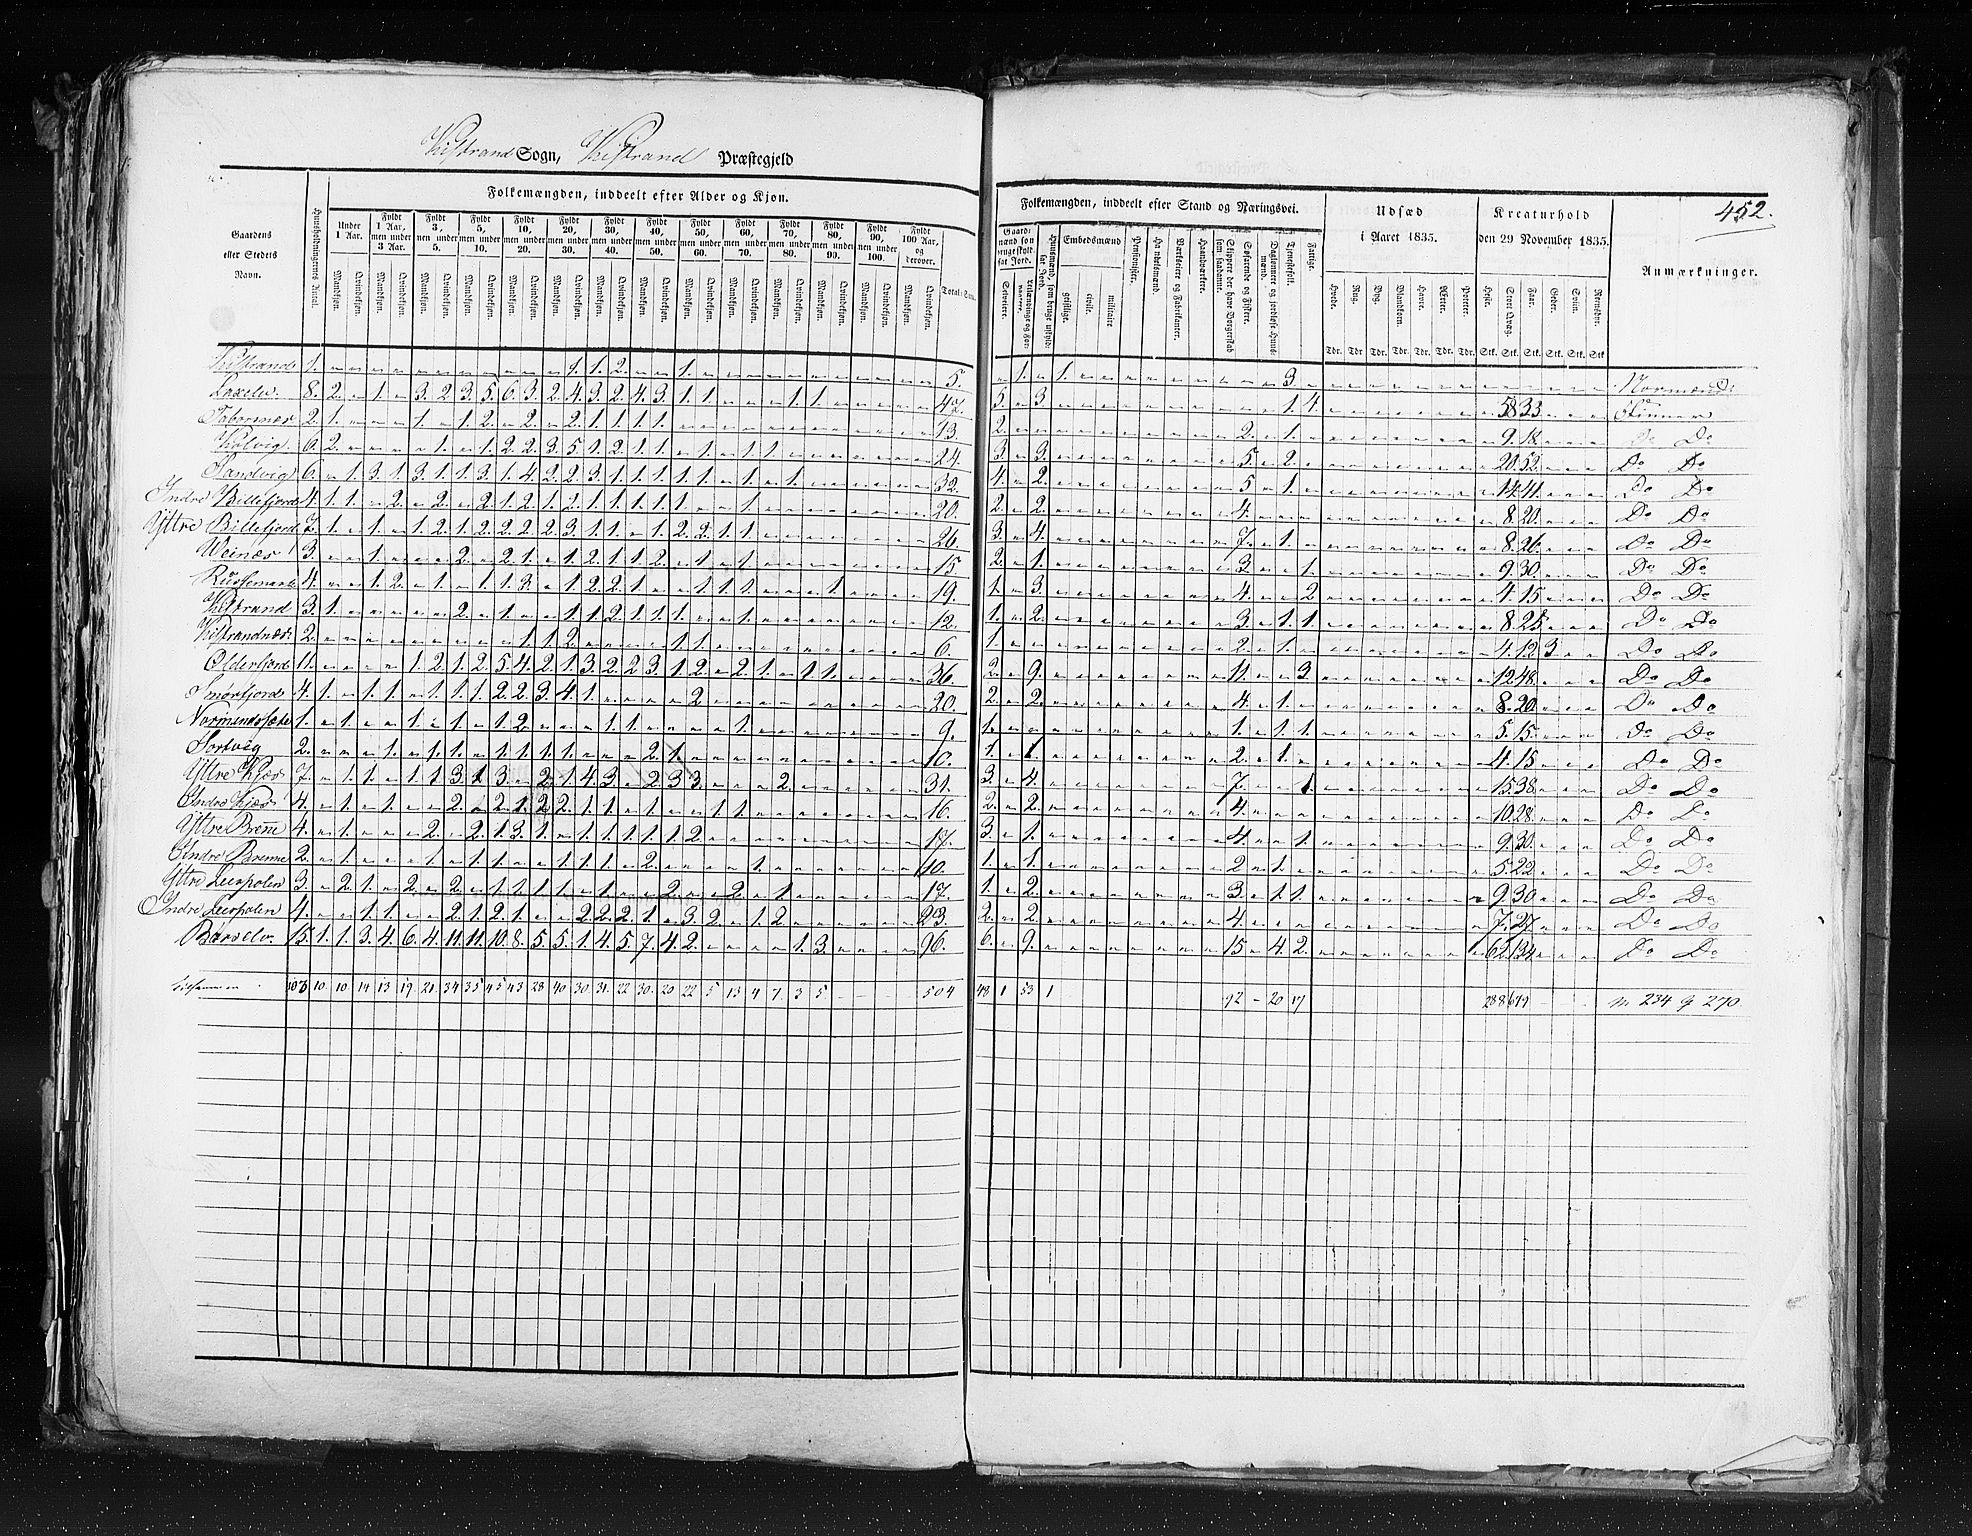 Kistrand Sogn, Kistrand Præstegjeld
452.
Gaardens eller Stedets Navn.
Huusholdningernes Antal.
Folkemængden, inddeelt efter Alder og Kjøn.
Under 1 Aar. Fyldt 1 Aar, men under 3 Aar. Fyldt 3, men under 5. Fyldt 5, men under 10. Fyldt 10, men under 20. Fyldt 20, men under 30. Fyldt 30, men under 40. Fyldt 40, men under 50. Fyldt 50, men under 60. Fyldt 60, men under 70. Fyldt 70, men under 80. Fyldt 80, men under 90. Fyldt 90, men under 100. Fyldt 100 Aar, og derover.
Mandkjøn. Qvindekjøn. Mandkjøn. Qvindekjøn. Mandkjøn. Qvindekjøn. Mandkjøn. Qvindekjøn. Mandkjøn. Qvindekjøn. Mandkjøn. Qvindekjøn. Mandkjøn. Qvindekjøn. Mandkjøn. Qvindekjøn. Mandkjøn. Qvindekjøn. Mandkjøn. Qvindekjøn. Mandkjøn. Qvindekjøn. Mandkjøn. Qvindekjøn. Mandkjøn. Qvindekjøn. Mandkjøn. Qvindekjøn.
Folkemængden, inddeelt efter Stand og Næringsvei.
Selveiere. Embedsmænd geistlige. civile. militaire Pensionister. Handelsmænd. Værkseiere og Fabrikanter. Haandværkere. Skippere der have Borgerskab som saadanne. Søfarende og Fiskere. Daglønnere og jordløse Huusmænd. Tjenestefolk. Fattige.
Udsæd i Aaret 1835.
Hvede. Rug. Byg. Blandkorn. Havre. Ærter. Poteter.
Tdr. Tdr. Tdr. Tdr. Tdr. Tdr. Tdr.
Kreaturhold den 29 November 1835.
Heste. Stort Qvæg. Faar. Geder. Sviin. Rensdyr.
Stk. Stk. Stk. Stk. Stk. Stk
Anmærkninger.
Kistrand 1. 1. 1. 2. 1. 5. 1. 1. 3. Normænd
Laxelv. 8. 2. 1. 3. 2. 3. 5. 6. 3. 2. 4. 3. 2. 4. 3. 1. 1. 1. 1. 47. 5. 3. 1. 4. 58 33 Finner
2. 1. 1. 1. 2. 2. 2. 1. 1. 1. 1. 13. 2. 2. 1. 9. 18. Do Do
Kolvig. 6. 2. 1. 1. 2. 2. 3. 5. 1. 2. 1. 1. 1. 1. 1. 24. 3. 3. 5. 2. 20. 52. Do Do
Sandvig 6. 1. 3. 1. 3. 1. 1. 3. 1. 4. 2. 2. 3. 1. 1. 1. 1. 1. 1. 1. 32. 4. 2. 5 1. 14. 41. Do Do
Indre Billefjord 4. 1. 1. 2. 2. 2. 1. 2. 1. 2. 1. 1. 1. 1. 1. 1. 20. 2. 2. 4. 8. 20. Do Do
Yttre Billefjord 7. 1. 1. 1. 2. 1. 2. 2. 2. 2. 3. 1. 1. 1. 2. 2. 1. 1. 26. 3. 4. 7. 1. 8. 26. Do Do
Weinæs 3. 1. 2. 2. 1. 1. 2. 1. 1. 2. 1. 1. 15. 2. 1. 3. 1. 9. 30. Do Do
4. 1. 2. 1. 1. 1. 3. 1. 2. 2. 1. 1. 1. 1. 1. 19. 1. 3. 4. 2 4. 15. Do Do
Kistrand 3. 1. 2. 1. 1. 1. 2. 1. 1. 1. 1. 12. 1. 2. 3. 1. 1. 8. 25. Do Do
Kistrandnæs 2. 1. 1. 2. 1. 1. 6. 1. 2. 1. 4. 12. 3. Do Do
Olderfjord 11. 1. 2. 1. 2. 5. 4. 2. 1. 3. 2. 2. 3. 1. 2. 2. 1. 1. 1. 36. 2. 9. 11. 3. 12 48. Do Do
Smørfjord 4. 1. 1. 1. 1. 1. 1. 2. 2. 3. 4. 1. 2. 20. 2. 2. 4. 1. 8. 20. Do Do
Normandssæt 1. 1. 1. 1. 1. 2. 1. 1. 1. 9. 1. 1. 1. 1. 5. 15. Do Do
2. 1. 1. 1. 1. 1. 1. 1. 2. 1. 10. 1. 1 2. 1. 4. 15. Do Do
Yttre Kjæs 7. 1. 1. 1. 1. 3. 1. 3. 2. 1. 4. 3. 2. 3. 3. 2. 31. 3. 4. 7. 1. 15. 38. Do Do
Indre Kjæs 4. 1. 1. 2. 2. 1. 2. 2. 1. 1. 1. 1. 1. 16. 2. 2. 4. 10. 28. Do Do
Yttre Brenne 4. 1. 2. 2. 1. 3. 1. 1. 1. 1. 1. 1. 2. 17. 3. 1. 4. 1. 9. 30. Do Do
Indre Brenne 2. 1. 1. 1. 1. 1. 1. 1. 2. 1. 10. 1. 1. 2. 1. 5. 22. Do Do
Yttre Leirpolen 3. 2. 1. 2. 2. 1. 1. 1. 1. 1. 2. 2. 1. 17. 1. 2. 3. 1. 1. 9. 30. Do Do
Indre Leirpolen 4. 1. 1. 2. 1. 2. 1. 2. 2. 2. 1. 3. 2. 1. 2. 23. 2. 2. 4. 7. 27. Do Do
Børselv. 15. 1. 1. 3. 4. 6. 4. 11. 11. 10. 8. 5. 5. 1. 4. 5. 7. 4. 2. 1. 3. 96. 6. 9. 15. 4. 2. 1. 62. 134. Do Do
Tilsammen 10. 10. 14 13 19. 21. 34 35 45 43 28 40 30. 31. 22 30. 20 22 5 13 4 7. 3 5 504 48 1 53 1 92 20 17 288 679 m 234 q 270